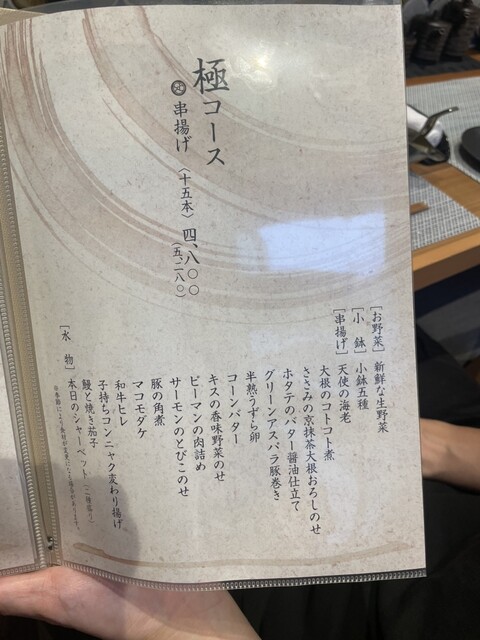 極コース
串揚げ〈十五本〉 四、八〇〇
(五、二八〇)
[お野菜] 新鮮な生野菜
[小 鉢] 小鉢五種
[串揚げ] 天使の海老
大根のコトコト煮
ささみの京抹茶大根おろしのせ
ホタテのバター醤油仕立て
グリーンアスパラ豚巻き
半熟うずら卵
コーンバター
キスの香味野菜のせ
ピーマンの肉詰め
サーモンのとびこのせ
豚の角煮
マコモダケ
和牛ヒレ
子持ちコンニャク変わり揚げ
鰻と焼き茄子
[水 物] 本日のシャーベット(二種盛り)
※季節によって食材が変更になる場合があります。